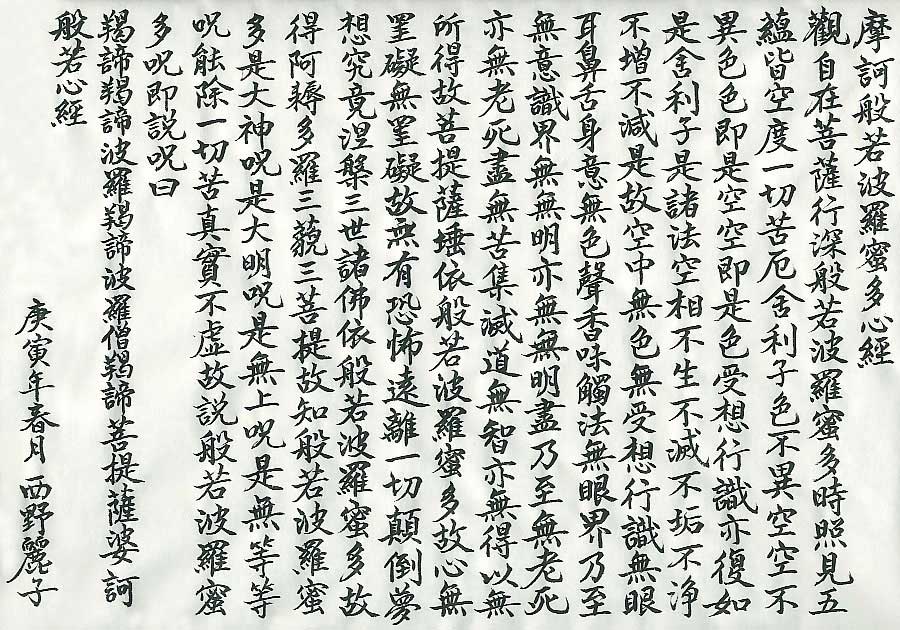 摩訶般若波羅蜜多心經
觀自在菩薩行深般若波羅蜜多時照見五
蘊皆空度一切苦厄舍利子色不異空空不
異色色即是空空即是色受想行識亦復如
是舍利子是諸法空相不生不滅不垢不浄
不增不減是故空中無色無受想行識無眼
耳鼻舌身意無色聲香味觸法無眼界乃至
無意識界無無明亦無無明盡乃至無老死
亦無老死盡無苦集滅道無智亦無得以無
所得故菩提薩埵依般若波羅蜜多故心無
罣礙無罣礙故無有恐怖遠離一切顛倒夢
想究竟涅槃三世諸佛依般若波羅蜜多故
得阿耨多羅三藐三菩提故知般若波羅蜜
多是大神呪是大明呪是無上呪是無等等
呪能除一切苦真實不虛故説般若波羅蜜
多呪即説呪曰
羯諦羯諦波羅羯諦波羅僧羯諦菩提薩婆訶
般若心經
庚寅年春月 西野麗子